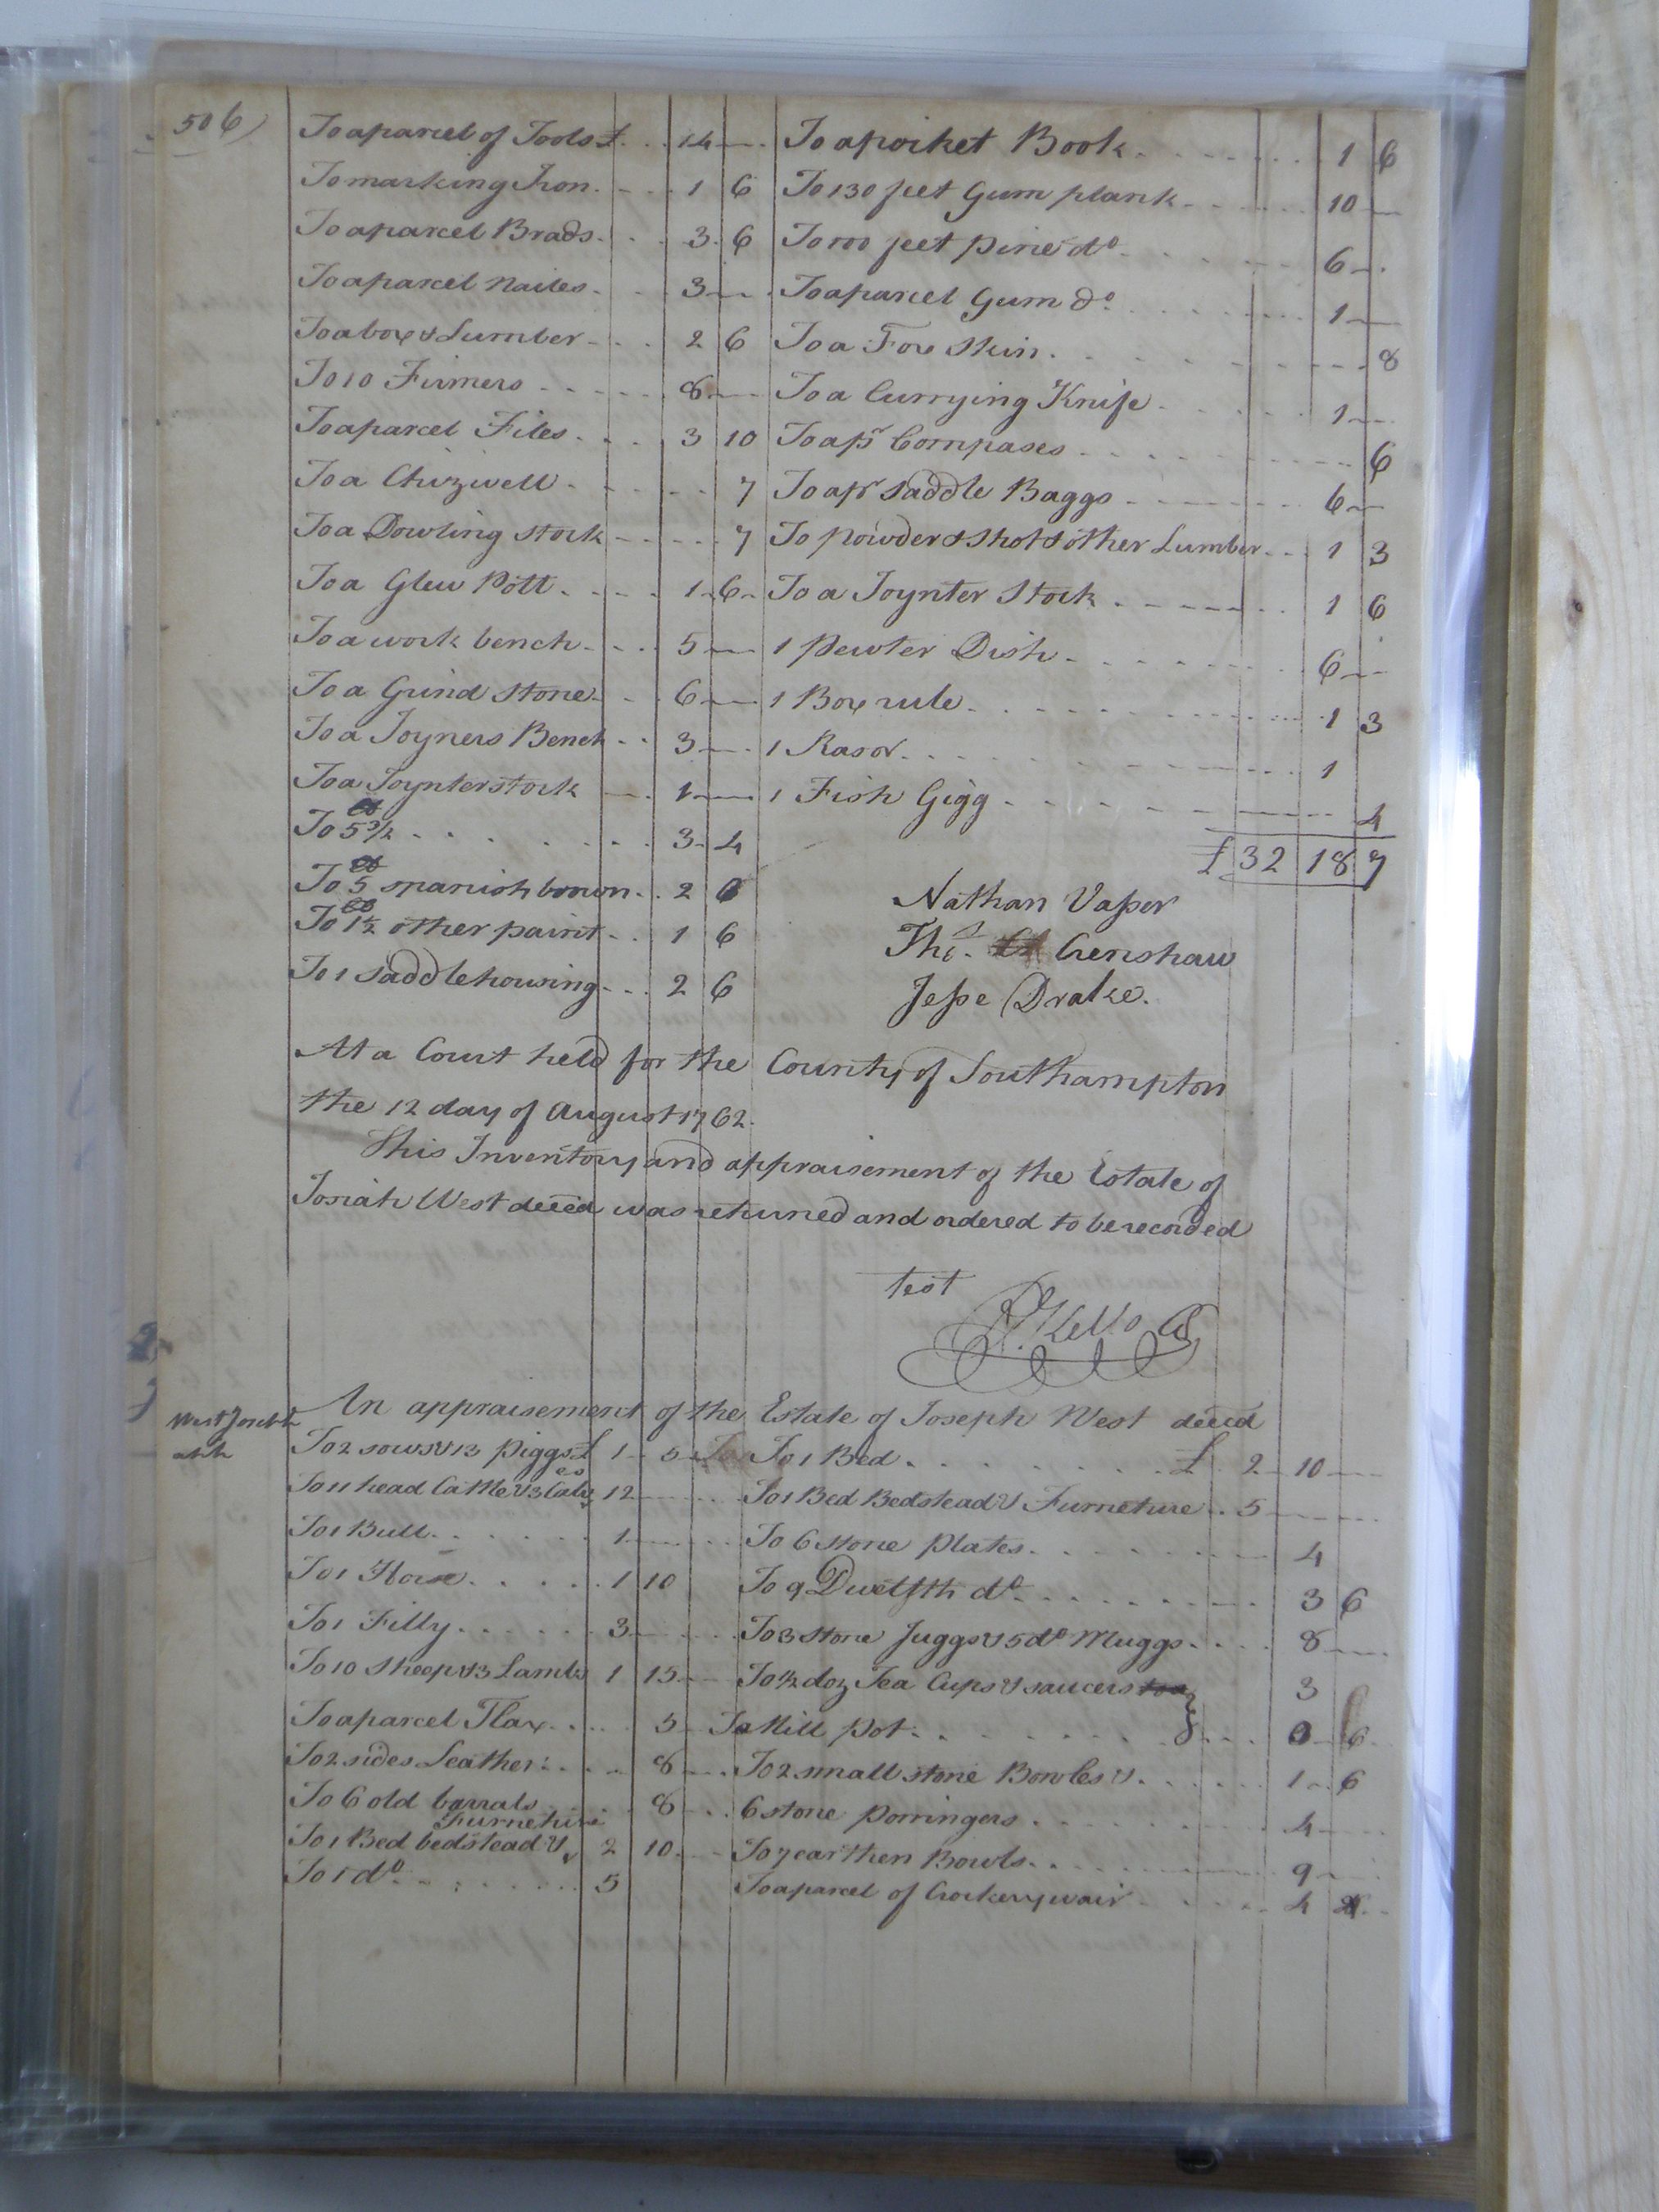 506)
To a parcel of Tools £ . . 14 —
To marking Iron . - - 1 6
To a parcel Brads . . . 3 . 6
To a parcel nailes . . . 3 —
To a box & Lumber - . . 2 6
To 10 Firmers . . . . 8 —
To a parcel Files . . . 3 10
To a Chizwell . . . . 7
To a Dowling stock - - - 7
To a Glew Pott . . . 1 6
To a work bench . . . 5 —
To a Grind stone . . 6 —
To a Joyners Bench . . 3 —
To a Joynter stock — 1 —
To 5 . . . . . . 3 4
To 5 lb spanish brown . . 2 6
To 1½ lb other paint . . 1 6
To 1 saddle housing . . . 2 6
To a pocket Book . . . . 1 6
To 130 feet Gum plank . . . 10 —
To 100 feet pine do . . . . 6 —
To a parcel Gum do . . . . 1 —
To a Fox skin . . . . 8
To a Currying Knife . . . . 1 —
To a pr Compases . . . . 6
To a pr saddle Baggs . . . . 6 —
To powder & shot & other Lumber . . 1 3
To a Joynter Stock . . . . 1 6
1 pewter Dish . . . . 6 —
1 Box rule . . . . 1 3
1 Rasor . . . . 1
1 Fish Gigg . . . . 4
£ 32 18 7
Nathan Vaser
Thos. Crenshaw
Jesse Drake.
At a Court held for the County of Southampton
the 12 day of August 1762.
This Inventory and appraisement of the Estate of
Josiah West deced was returned and ordered to be recorded
test
R. Kello CC
West Joseph
An appraisement of the Estate of Joseph West deced
To 2 sows & 13 piggs £ 1 - 5 -
To 11 head Cattle & 3 Calves 12 —
To 1 Bull . . . . 1 —
To 1 Horse . . . . 1 10
To 1 Filly . . . . 3 —
To 10 sheep & 3 Lambs 1 15 —
To a parcel Flax . . . 5 —
To 2 sides Leather . . . 8 —
To 6 old barrals . . 8 —
To 1 Bed bedstead & Furneture 2 10 —
To 1 do . . . . 5
To 1 Bed . . . . £ 2 10 —
To 1 Bed Bedstead & Furneture . . 5 —
To 6 stone plates . . . . 4
To 9 Dwelfth do . . . . 3 6
To 3 stone Juggs & 5 do Muggs . . . 8 —
To ½ doz Tea Cups & saucers 3
To Mill pot . . . . 6
To 2 small stone Bowles & . . . . 1 6
6 stone porringers . . . . 4 —
To 7 earthen Bowls . . . . 9 —
To a parcel of Crockery wair . . . . 4